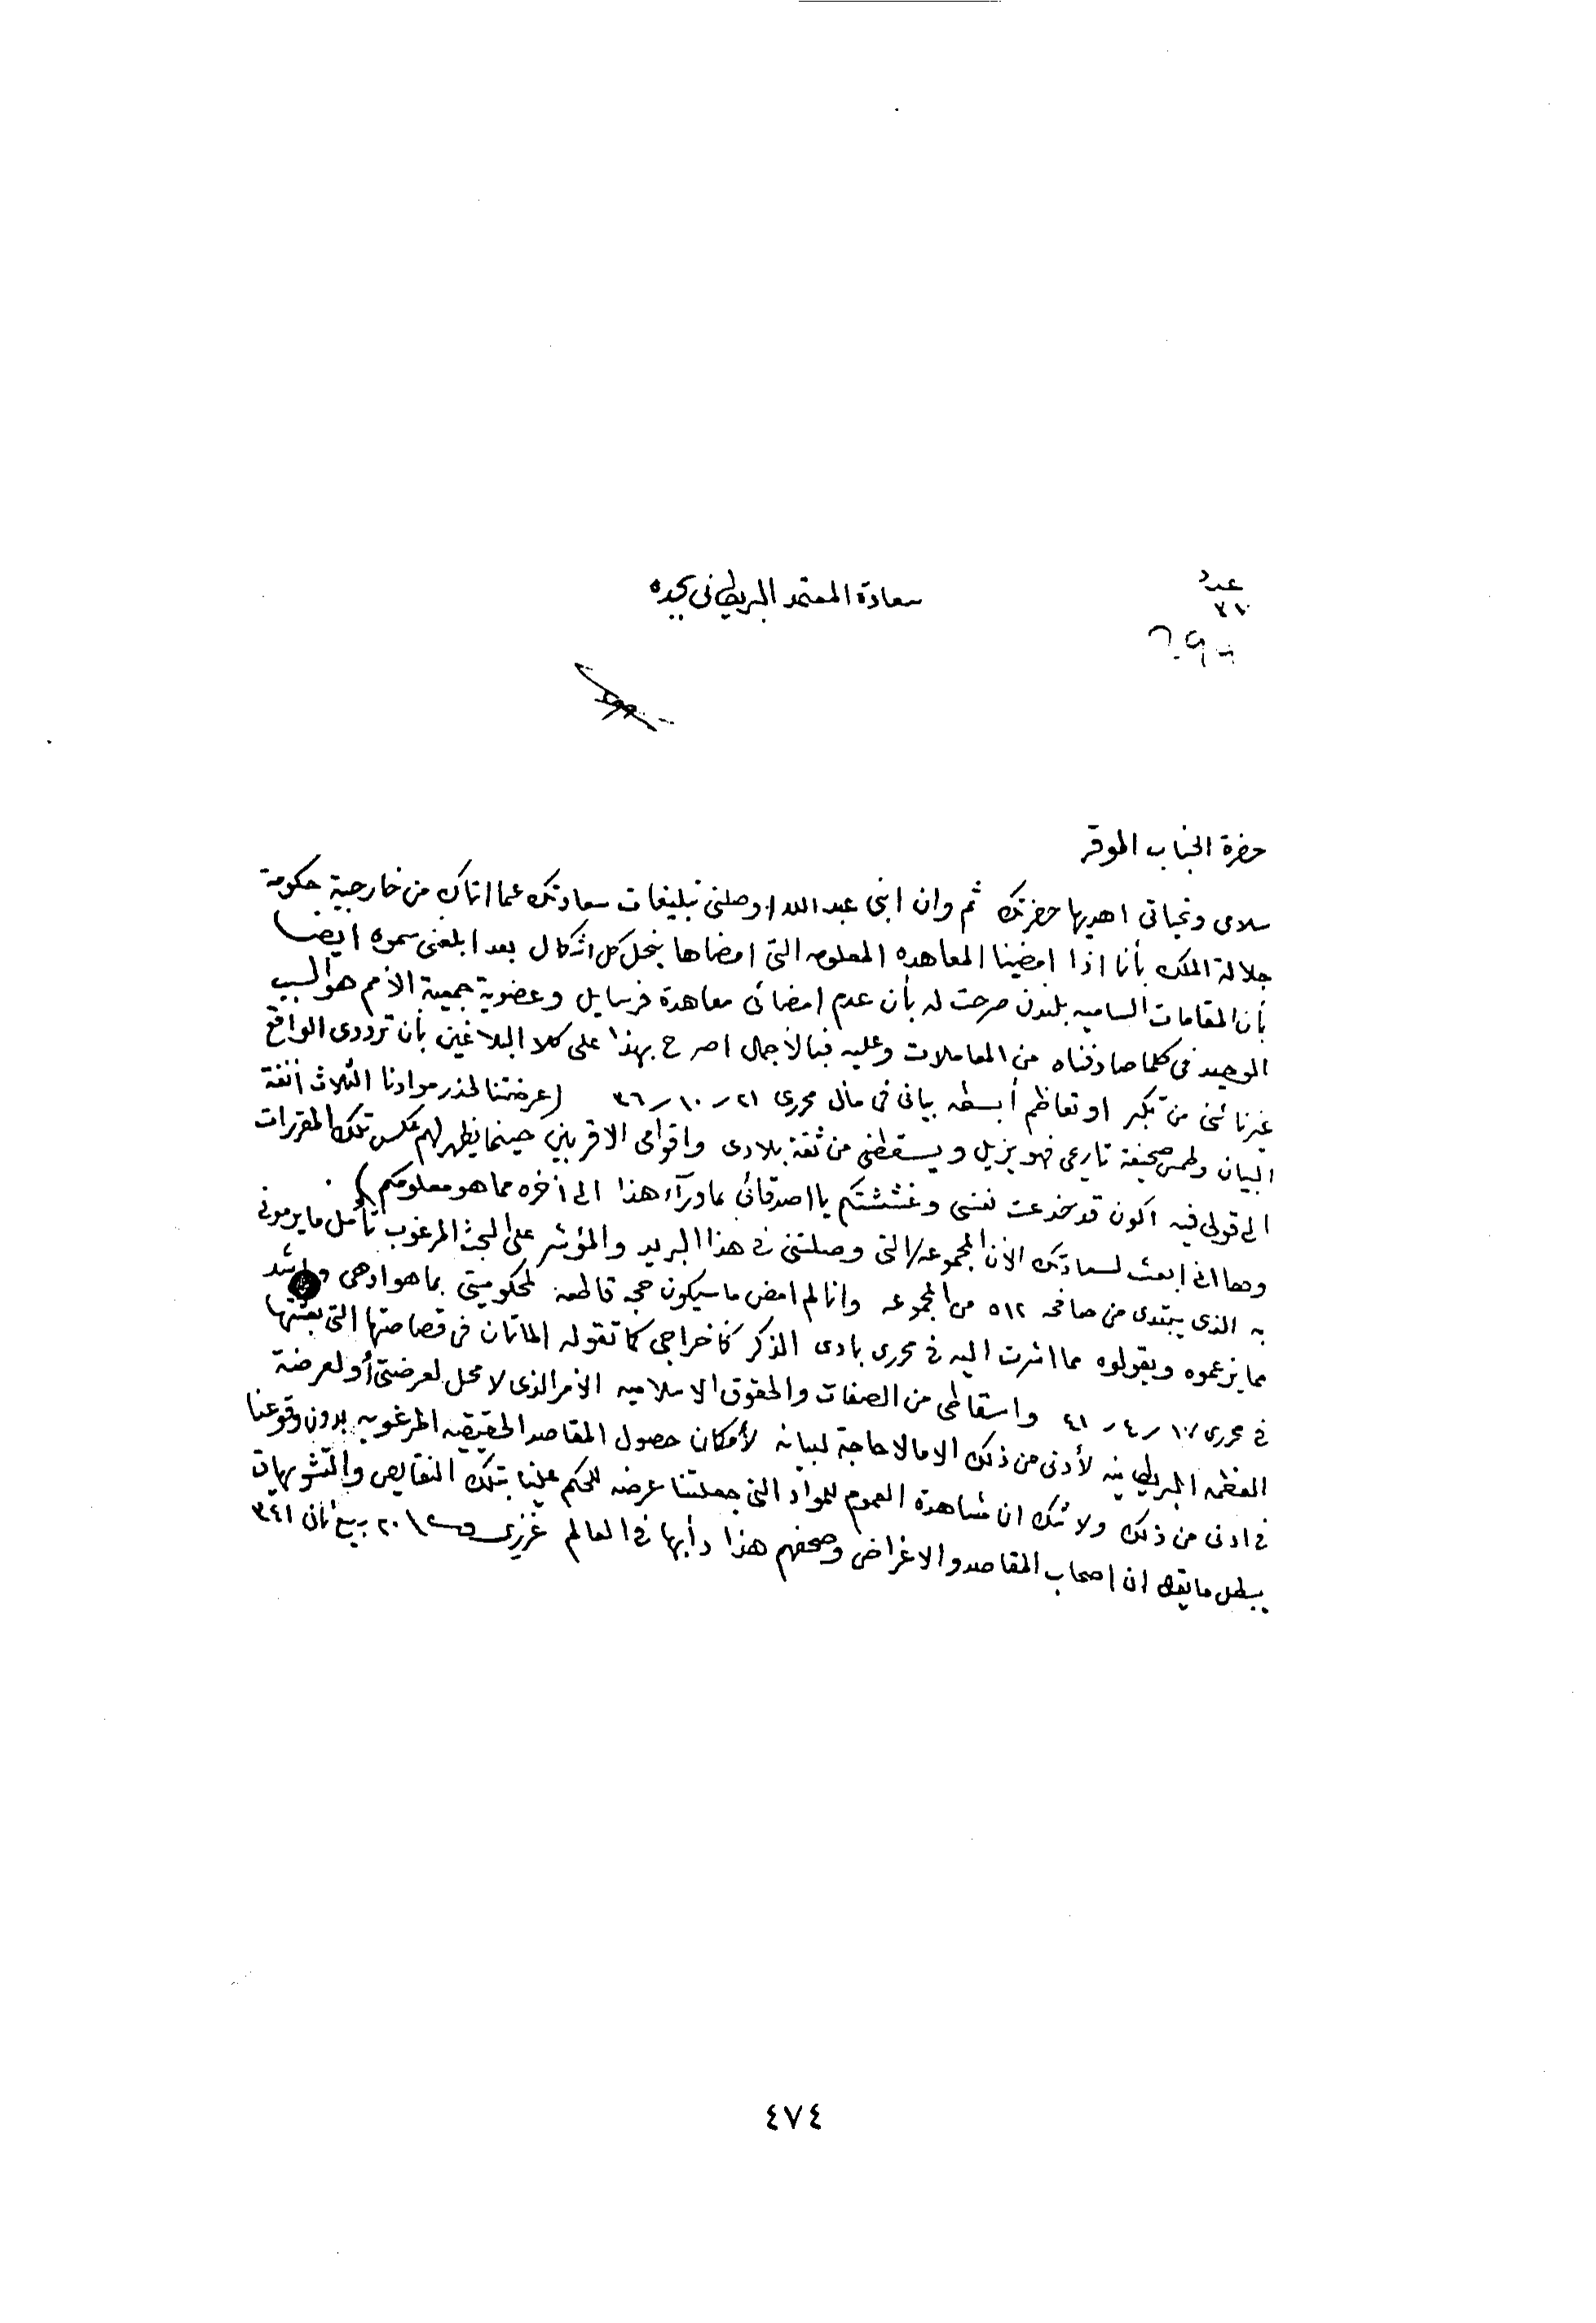 عدد
٢١٠
سعادة المعتمد البريطاني بجده
حضرة الجناب الموقر
سلامي وتحياتي اهديها حضرتك ثم وان ابني عبد الله اوصلني تبليغات سعادتك عما اتاك من خارجية حكومة
جلالة الملك بأنا اذا امضينا المعاهده المعلومه التي امضاها ينحل كل اشكال بعد ابلغني سموه ايضا
بأن المقامات الساميه بلندن صرحت له بأن عدم امضائي معاهدة فرسايل وعضوية جمعية الأمم هو السبب
الوحيد في كلما صادفناه من المعاملات وعليه فبالأجمال اصرح بهذا على كلا البلاغين بأن ترددي الواقع
غير ناشئ من تكبر او تعاظم أبسطه بياني في مآل محرري ٢١-١٠-٣٦ (عرضتنا لحذر موادنا الثلاث آنفة
البيان وطمس صحيفة تاريخي فهو يزيل ويسقطني من ثقة بلادي واقوامي الاقربين حينما يظهر لهم عكس تلك المقررات
الى قولي فيه اكون قد خدعت نفسي وغششتكم يا اصدقائي بما ورآء هذا الى آخره مما هو معلومكم) .
وها اني ابعث لسعادتك الأن المجموعه التي وصلتني في هذا البريد والمؤشر على البحث المرغوب تأمل ما يرموني
به الذي يبتدى من صافحه ٥١٢ من المجموعه وانا لم امض ما سيكون حجه قاطعه لمحكوميتي بما هو ادهى واشد
مما يزعموه ويقولوه مما اشرت اليه في محرري بادى الذكر كأخراجي كما تقوله الماتان في قصاصتها التي بعثتها
في محرري ١٠٧-٤-٤١ واسقاطي من الصفات والحقوق الاسلاميه الأمر الذي لا محل لعرضتي أو لعرضة
العظمه البريطانيه لأدنى من ذلك الا ما لا حاجة لبيانه لأمكان حصول المقاصد الحقيقيه المرغوبه بدون وقوعنا
في ادنى من ذلك ولا شك ان مشاهدة العموم للمواد التي جعلتنا عرضه للحكم علينا بتلك النقايص والتشويهات
يبطل ما يقال ان اصحاب المقاصد والاغراض وصحفهم هذا دأبها في العالم عزيزي ٢٠ ربيع ثاني ٣٤١
٤٧٤